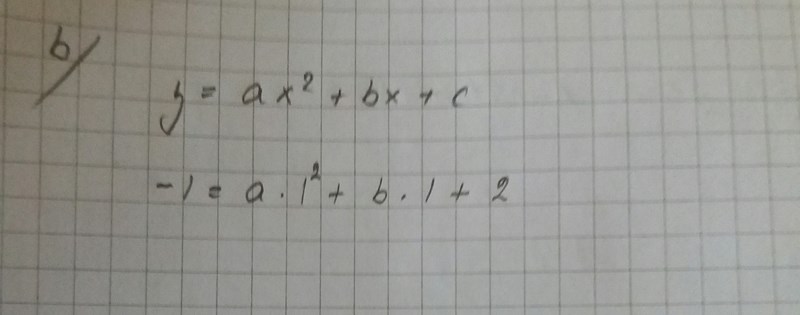 b/
y = ax² + bx + c
-1 = a · 1² + b · 1 + 2